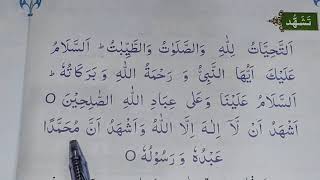 تشهّد
اَلتَّحِيَّاتُ لِلّٰهِ وَالصَّلَوٰتُ وَالطَّيِّبٰتُ ؕ اَلسَّلَامُ
عَلَيْكَ اَيُّهَا النَّبِيُّ وَ رَحْمَةُ اللّٰهِ وَ بَرَكَاتُهٗ ؕ
اَلسَّلَامُ عَلَيْنَا وَعَلٰى عِبَادِ اللّٰهِ الصّٰلِحِيْنَ O
اَشْهَدُ اَنْ لَّآ اِلٰهَ اِلَّا اللّٰهُ وَاَشْهَدُ اَنَّ مُحَمَّدًا
عَبْدُهٗ وَ رَسُوْلُهٗ O